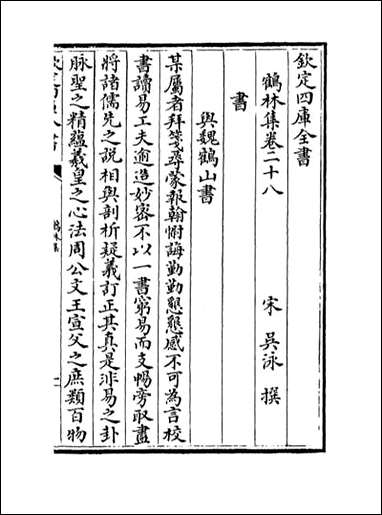 欽定四庫全書
鶴林集卷二十八
宋 吳泳 撰
書
與魏鶴山書
某屬者拜箋尋蒙報翰惜誨勤勤懇懇感不可為言校
書讀易工夫逾造妙密不以一書窮易而支暢旁取盡
將諸儒先之說相與剖析疑義訂正其真是非易之卦
脉聖之精蘊羲皇之心法周公文王宣父之庶類百物
鶴林集